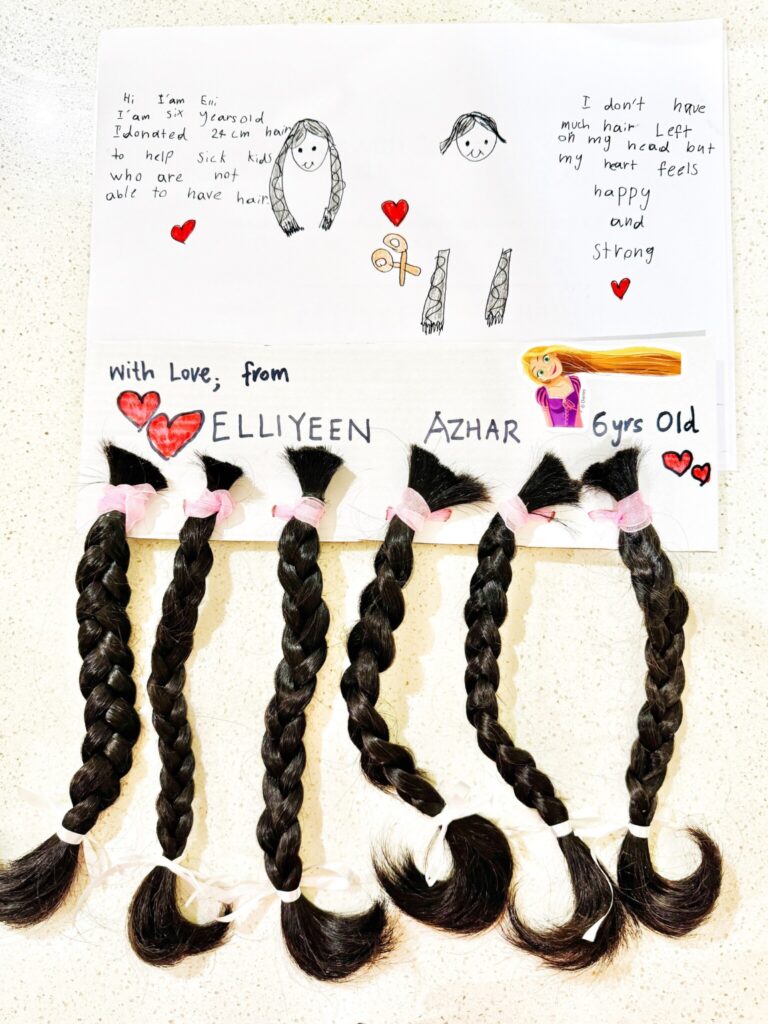 Hi I'am Elli
I'am six years old
I donated 24 cm hair
to help sick kids
who are not
able to have hair.
I don't have
much hair left
on my head but
my heart feels
happy
and
strong
With Love, from
ELLIYEEN AZHAR 6yrs Old